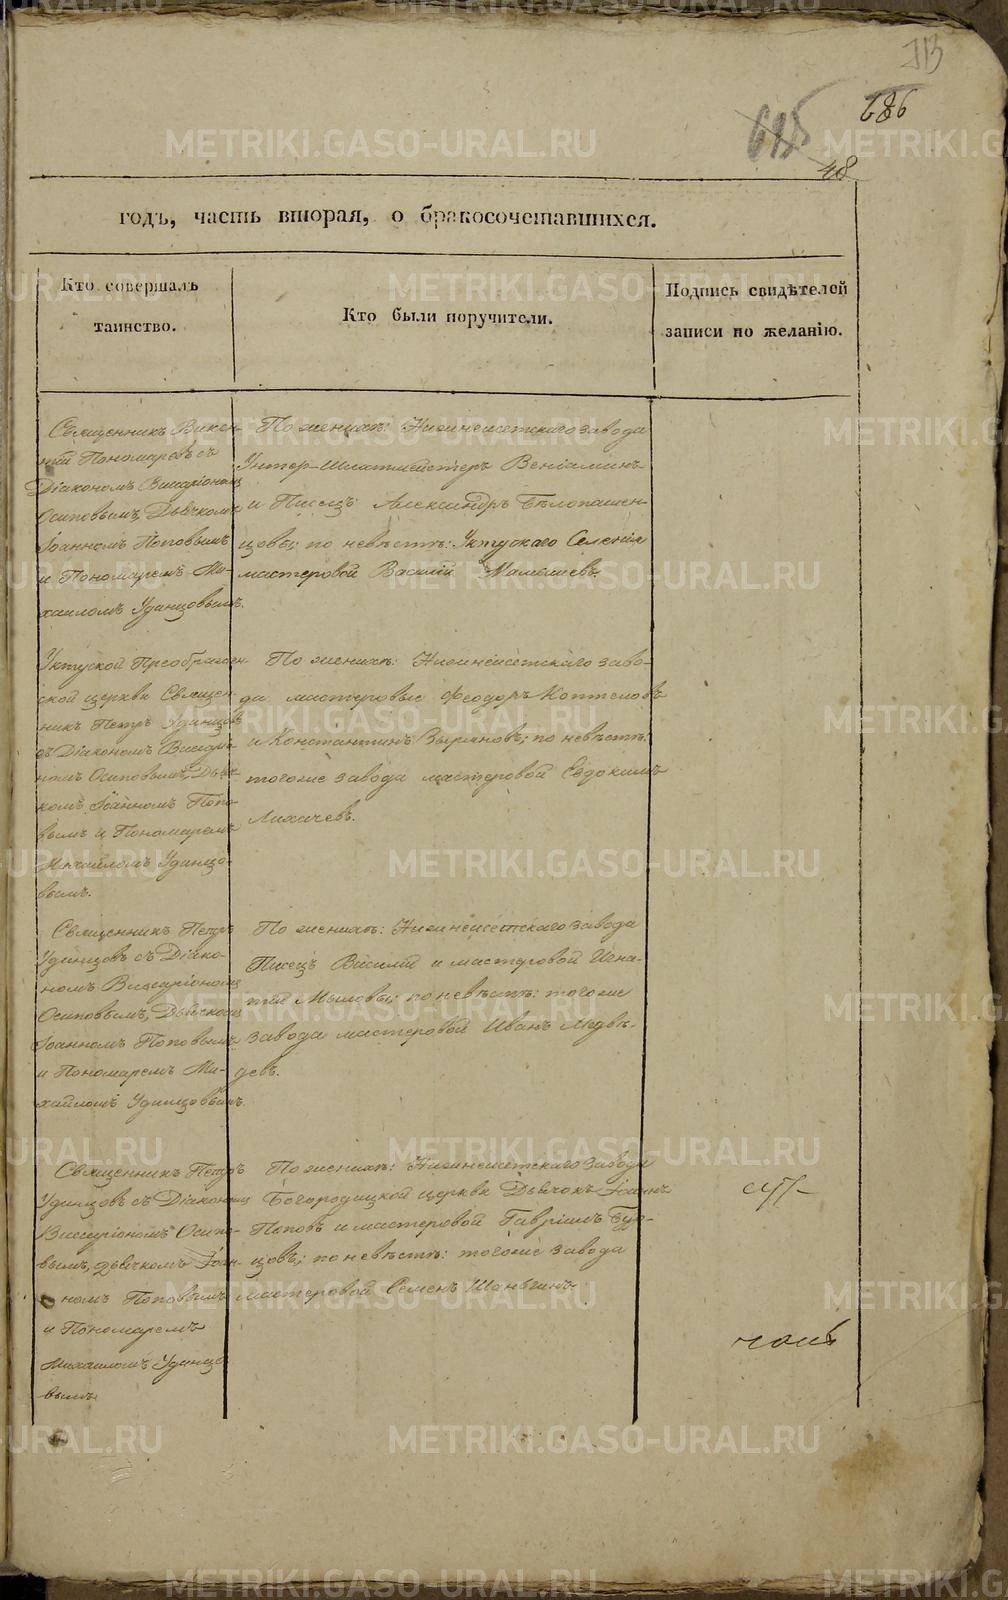 713
686
685
48
годъ, часть вторая, о бракосочетавшихся.
Кто совершалъ
таинство.
Кто были поручители.
Подпись свидѣтелей
записи по желанію.
Священникъ Викен-
тій Пономаревъ съ
Діакономъ Виссаріономъ
Осиповымъ, Дьячкомъ
Іоанномъ Поповымъ
и Пономаремъ Ми-
хаиломъ Удинцовымъ.
По женихѣ: Нижнеисетскаго завода
Унтер-Шихтмейстеръ Веніаминъ
и Писецъ Александръ Бѣлопашен-
цовы; по невѣстѣ: Уктускаго Селенія
мастеровой Василій Мамышевъ.
Уктуской Преображен-
ской церкви Священ-
никъ Петръ Удинцовъ
съ Діакономъ Виссарі-
ономъ Осиповымъ, Дьяч-
комъ Іоанномъ Попо-
вымъ и Пономаремъ
Михаиломъ Удинцо-
вымъ.
По женихѣ: Нижнеисетскаго заво-
да мастеровые Феодоръ Коптеловъ
и Константинъ Зыряновъ; по невѣстѣ:
тогоже завода мастеровой Евдокимъ
Лихачевъ.
Священникъ Петръ
Удинцовъ съ Діако-
номъ Виссаріономъ
Осиповымъ, Дьячкомъ
Іоанномъ Поповымъ
и Пономаремъ Ми-
хаиломъ Удинцовымъ.
По женихѣ: Нижнеисетскаго завода
Писецъ Василій и мастеровой Игна-
тій Мыловы; по невѣстѣ: тогоже
завода мастеровой Иванъ Медвѣ-
девъ.
Священникъ Петръ
Удинцовъ съ Діакономъ
Виссаріономъ Осипо-
вымъ, Дьячкомъ Іоан-
номъ Поповымъ
и Пономаремъ
Михаиломъ Удинцо-
вымъ
По женихѣ: Нижнеисетскаго завода
Богородицкой церкви Дьячок Іоаннъ
Поповъ и мастеровой Гавріилъ Бур-
цовъ; по невѣстѣ: тогоже завода
мастеровой Семенъ Шаньгинъ